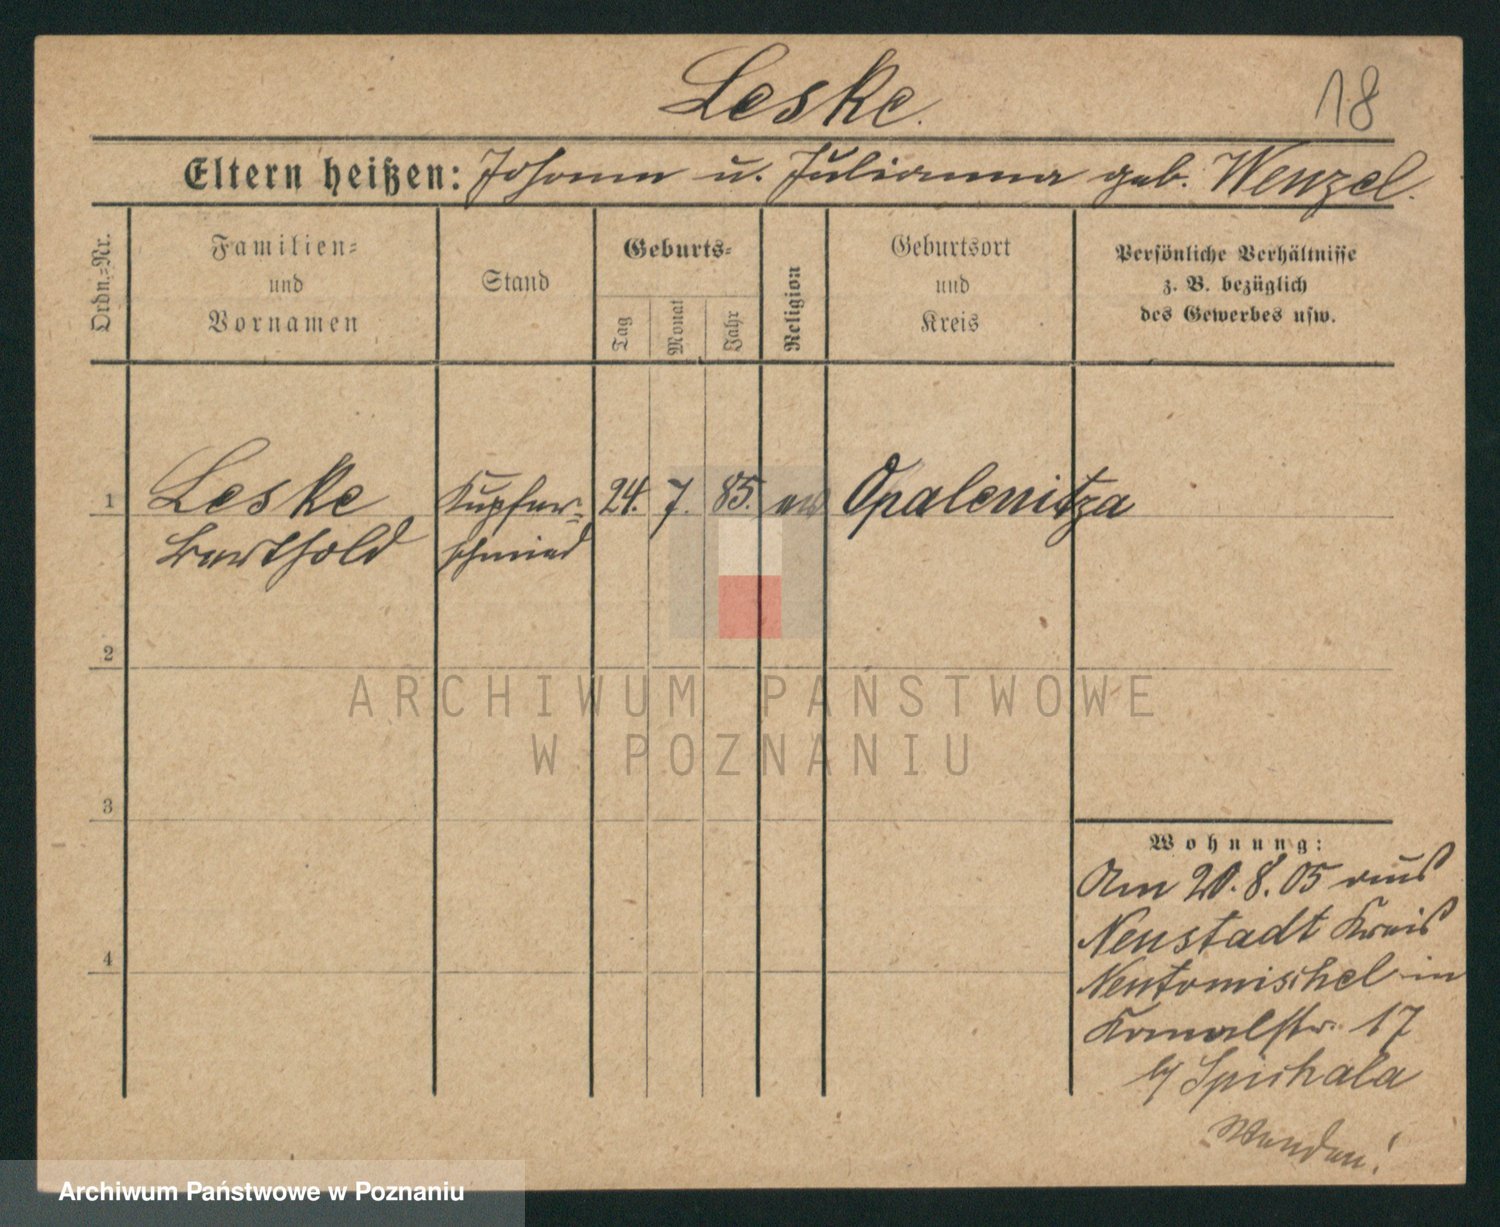 Leske.
18
Eltern heißen: Johann u. Julianna geb. Wenzel.
Ordn.-Nr.
Familien- und Vornamen
Stand
Geburts-
Tag
Monat
Jahr
Religion
Geburtsort und Kreis
Persönliche Verhältnisse z. B. bezüglich des Gewerbes usw.
1 Leske Kupfer- 24. 7. 85. ev Opalenitza
Berthold schmied
2
3
4
Wohnung:
Am 20.8.05 aus
Neustadt Kreis
Neutomischel in
Kanalstr. 17
by Spichala
Wenden!
ARCHIWUM PAŃSTWOWE
W POZNANIU
Archiwum Państwowe w Poznaniu